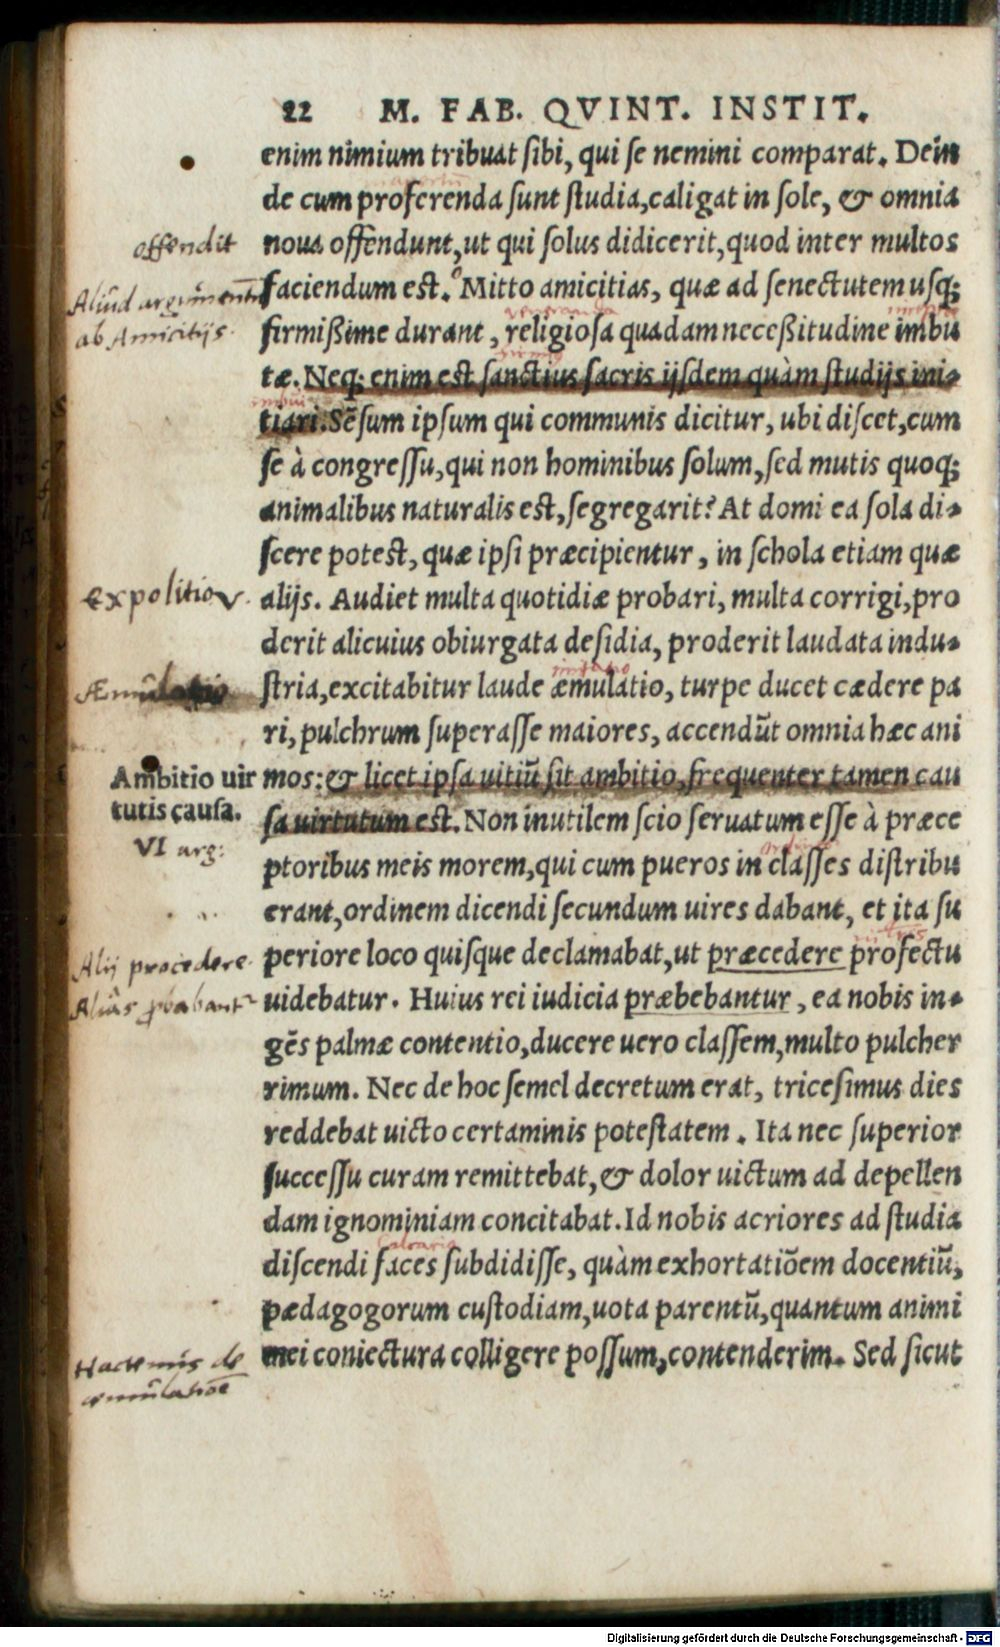 22 M. FAB. QVINT. INSTIT.
enim nimium tribuat sibi, qui se nemini comparat. Dein
de cum proferenda sunt studia, caligat in sole, & omnia
offendit
noua offendunt, ut qui solus didicerit, quod inter multos
Aliud argumentū
faciendum est. Mitto amicitias, quæ ad senectutem usq;
ab Amicitijs.
firmißime durant, religiosa quadam neceßitudine imbu
tæ. Neq; enim est sanctius sacris ijsdem quàm studijs ini-
tiari. Sēsum ipsum qui communis dicitur, ubi discet, cum
se à congressu, qui non hominibus solum, sed mutis quoq;
animalibus naturalis est, segregarit? At domi ea sola di-
scere potest, quæ ipsi præcipientur, in schola etiam quæ
expolitio
alijs. Audiet multa quotidiæ probari, multa corrigi, pro
derit alicuius obiurgata desidia, proderit laudata indu-
imitatio
Æmulatio
stria, excitabitur laude æmulatio, turpe ducet cædere pa
ri, pulchrum superasse maiores, accendūt omnia hæc ani
Ambitio uir
tutis causa.
mos: & licet ipsa uitiū sit ambitio, frequenter tamen cau
sa uirtutum est. Non inutilem scio seruatum esse à præce
VI arg:
ptoribus meis morem, qui cum pueros in classes distribu
erant, ordinem dicendi secundum uires dabant, et ita su
Alij procedere
periore loco quisque declamabat, ut præcedere profectu
Aliâs
uidebatur. Huius rei iudicia præbebantur, ea nobis in-
gēs palmæ contentio, ducere uero classem, multo pulcher
rimum. Nec de hoc semel decretum erat, tricesimus dies
reddebat uicto certaminis potestatem. Ita nec superior
successu curam remittebat, & dolor uictum ad depellen
dam ignominiam concitabat. Id nobis acriores ad studia
discendi faces subdidisse, quàm exhortatiōem docentiū,
pædagogorum custodiam, uota parentū, quantum animi
Hactenus de
æmulatiōe
mei coniectura colligere possum, contenderim. Sed sicut
Digitalisierung gefördert durch die Deutsche Forschungsgemeinschaft - DFG